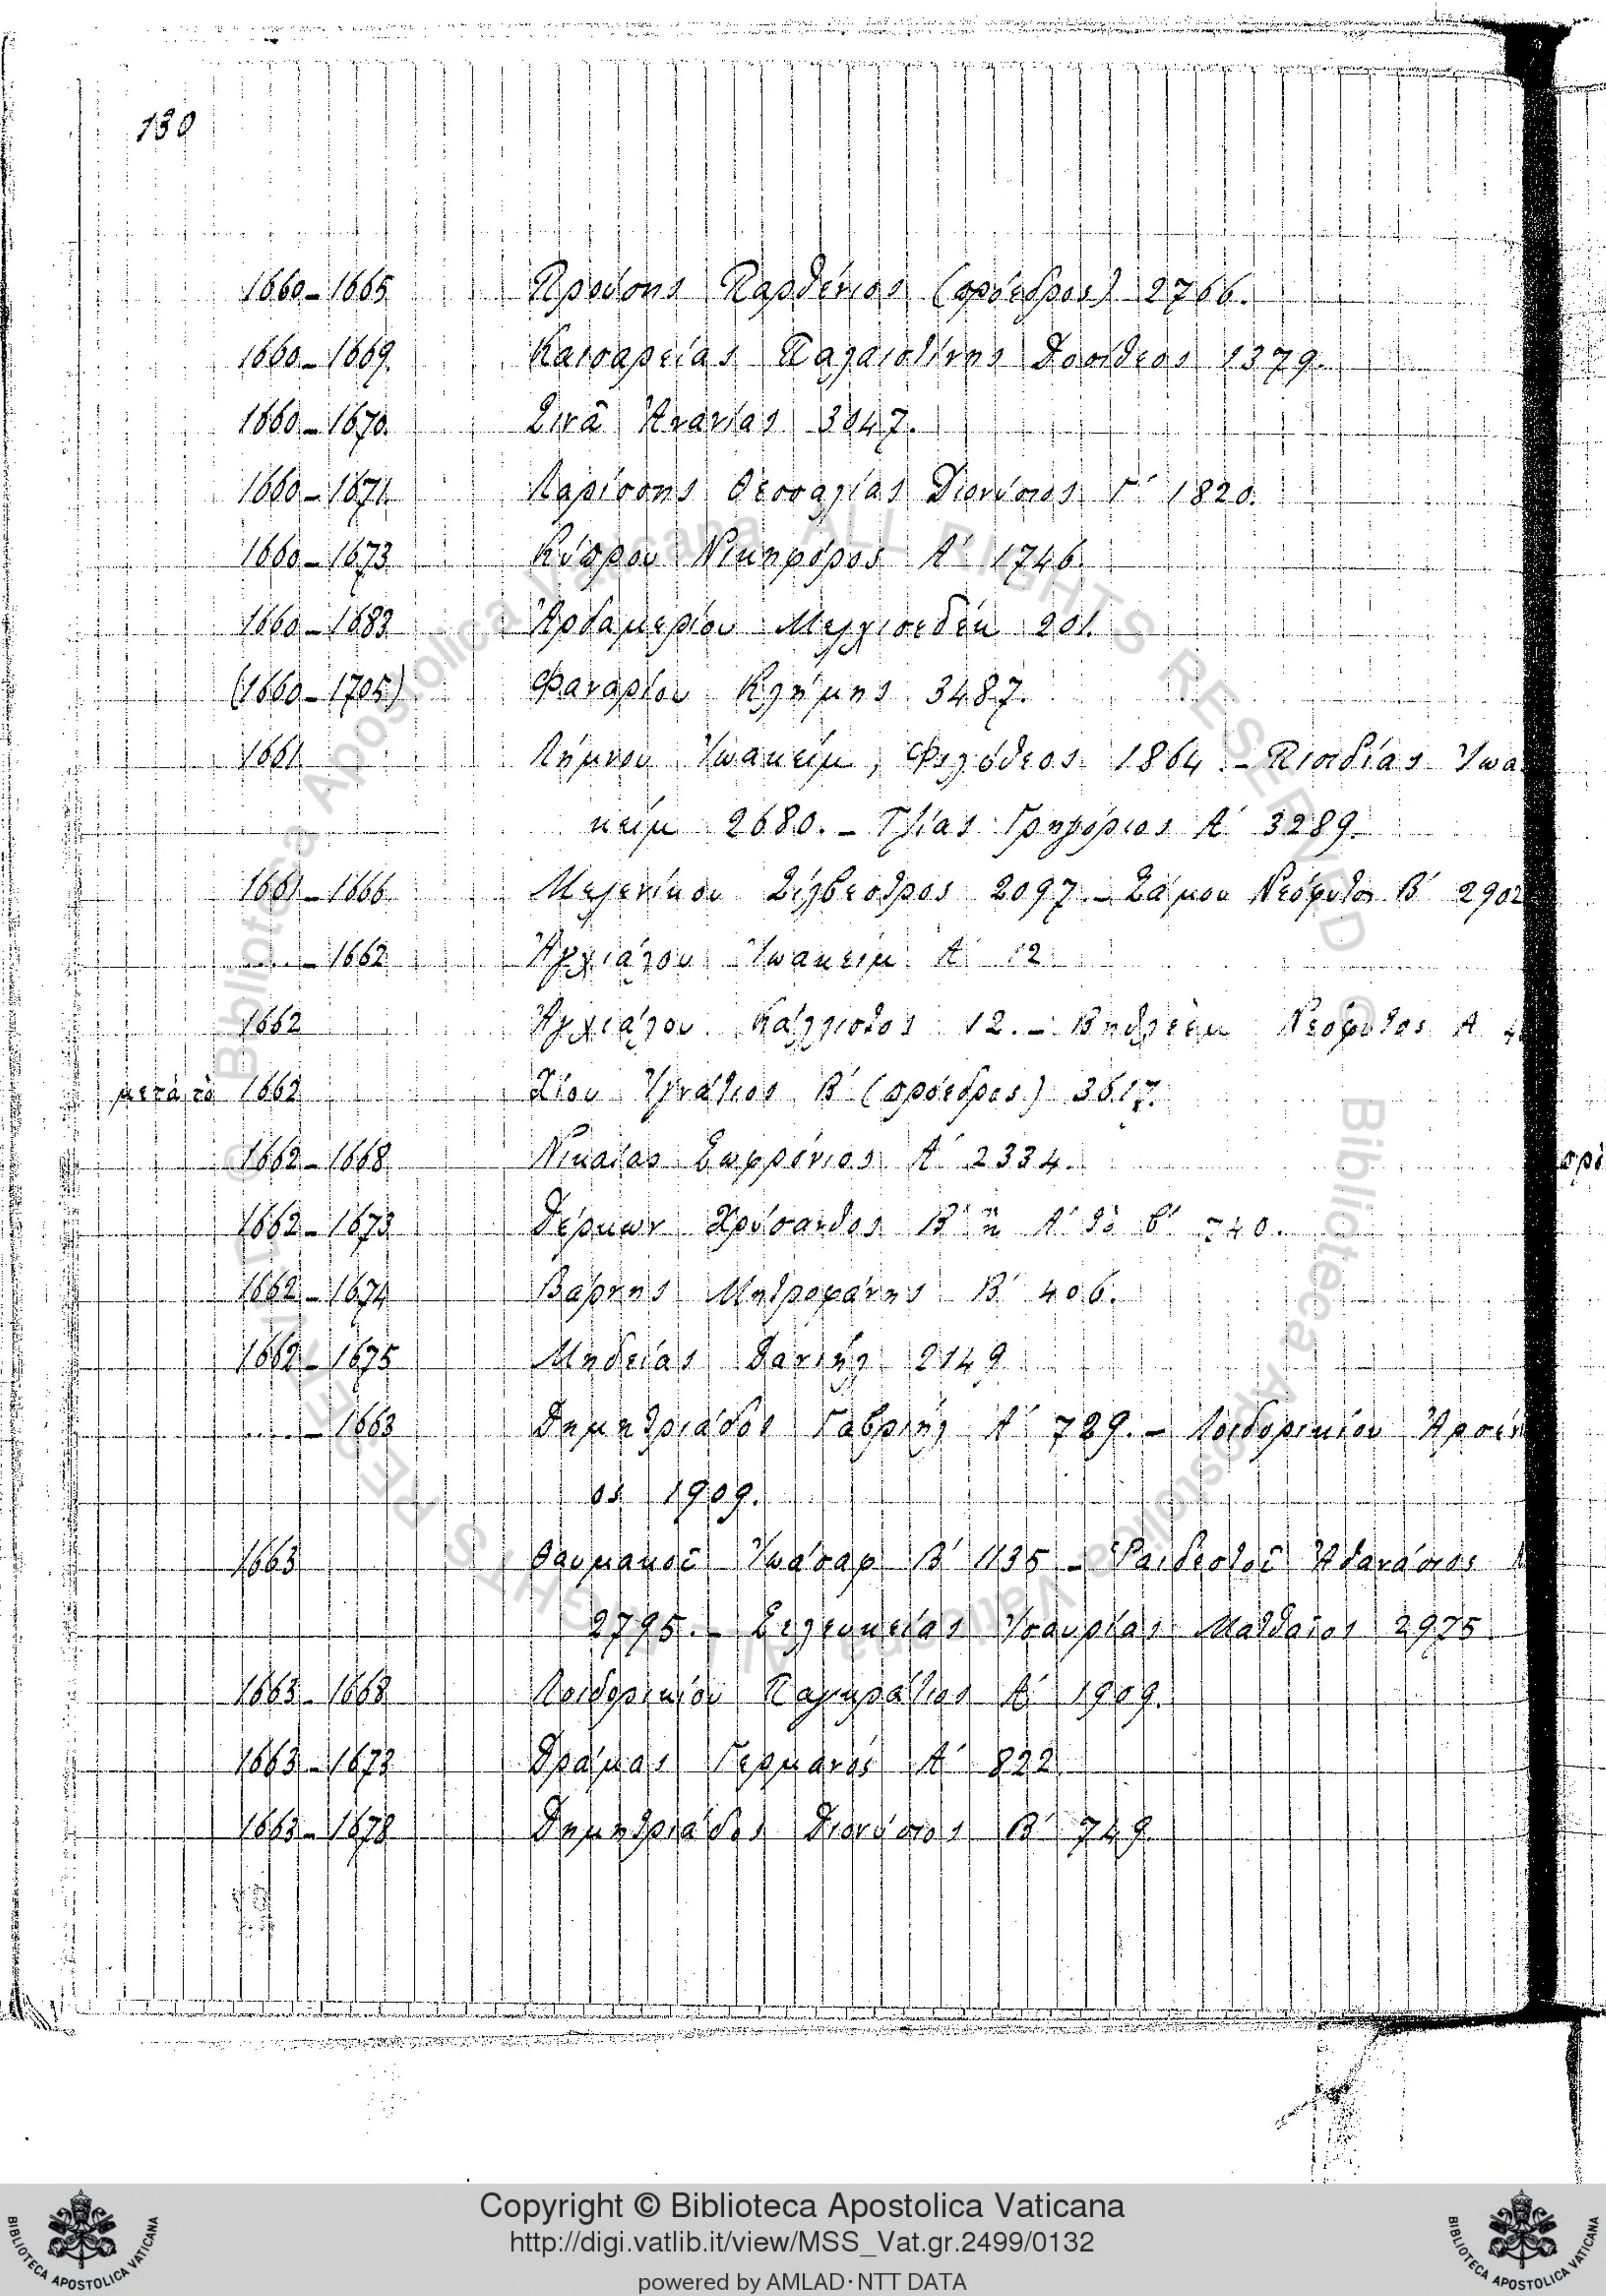 130
1660-1665 Προύσης Παρθένιος (πρόεδρος) 2766.
1660-1669 Καισαρείας Παλαιστίνης Δοσίθεος 1379.
1660-1670 Σινᾶ Ἀνανίας 3047.
1660-1671 Λαρίσσης Θεσσαλίας Διονύσιος Γ´ 1820.
1660-1673 Κύπρου Νικηφόρος Α´ 1746.
1660-1683 Ἀρδαμερίου Μελχισεδὲκ 201.
(1660-1705) Φαναρίου Κλήμης 3487.
1661 Λήμνου Ἰωακείμ, Φιλόθεος 1864.- Πισιδίας Ἰωα
κείμ 2680.- Τζίας Γρηγόριος Α´ 3289.
1661-1666 Μελενίκου Σίλβεστρος 2097.- Σάμου Νεόφυτος Β´ 2902
....-1662 Ἀγχιάλου Ἰωακείμ Α´ 12
1662 Ἀγχιάλου Κάλλιστος 12.- Βηθλεὲμ Νεόφυτος Α
μετὰ τὸ 1662 Χίου Ἰγνάτιος Β´ (πρόεδρος) 3617.
1662-1668 Νικαίας Σωφρόνιος Α´ 2334.
1662-1673 Δέρκων Χρύσανθος Β´ ἢ Α´ τὸ β´ 740.
1662-1674 Βάρνης Μητροφάνης Β´ 406.
1662-1675 Μηδείας Δανιὴλ 2149
....-1663 Δημητριάδος Γαβριὴλ Α´ 729.- Λοιδορικίου Ἀρσέν
ος 1909.
1663 Θαυμακοῦ Ἰωάσαφ Β´ 1135 - Ῥαιδεστοῦ Ἀθανάσιος
2795.- Σελευκείας Ἰσαυρίας Ματθαῖος 2975
1663-1668 Λοιδορικίου Παγκράτιος Α´ 1909.
1663-1673 Δράμας Γερμανός Α´ 822
1663-1678 Δημητριάδος Διονύσιος Β´ 749
Copyright © Biblioteca Apostolica Vaticana
http://digi.vatlib.it/view/MSS_Vat.gr.2499/0132
powered by AMLAD·NTT DATA